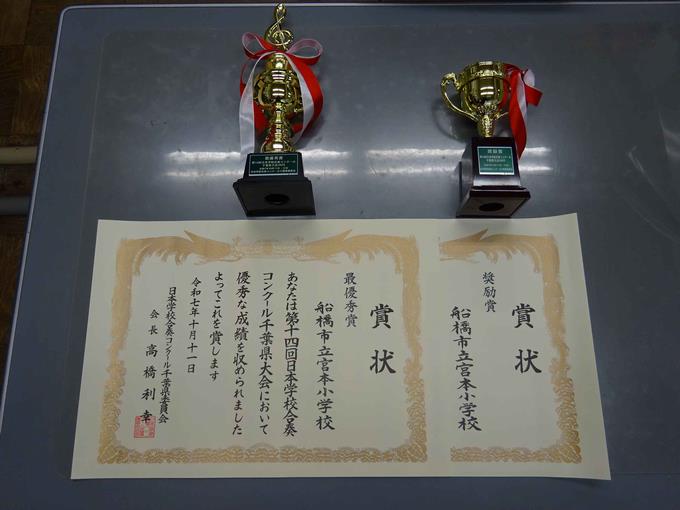 賞状
奨励賞
船橋市立宮本小学校
賞状
最優秀賞
船橋市立宮本小学校
あなたは第十四回日本学校合奏
コンクール千葉県大会において
優秀な成績を収められました
よってこれを賞します
令和七年十月十一日
日本学校合奏コンクール千葉県委員会
会長 高橋利幸
最優秀賞
奨励賞